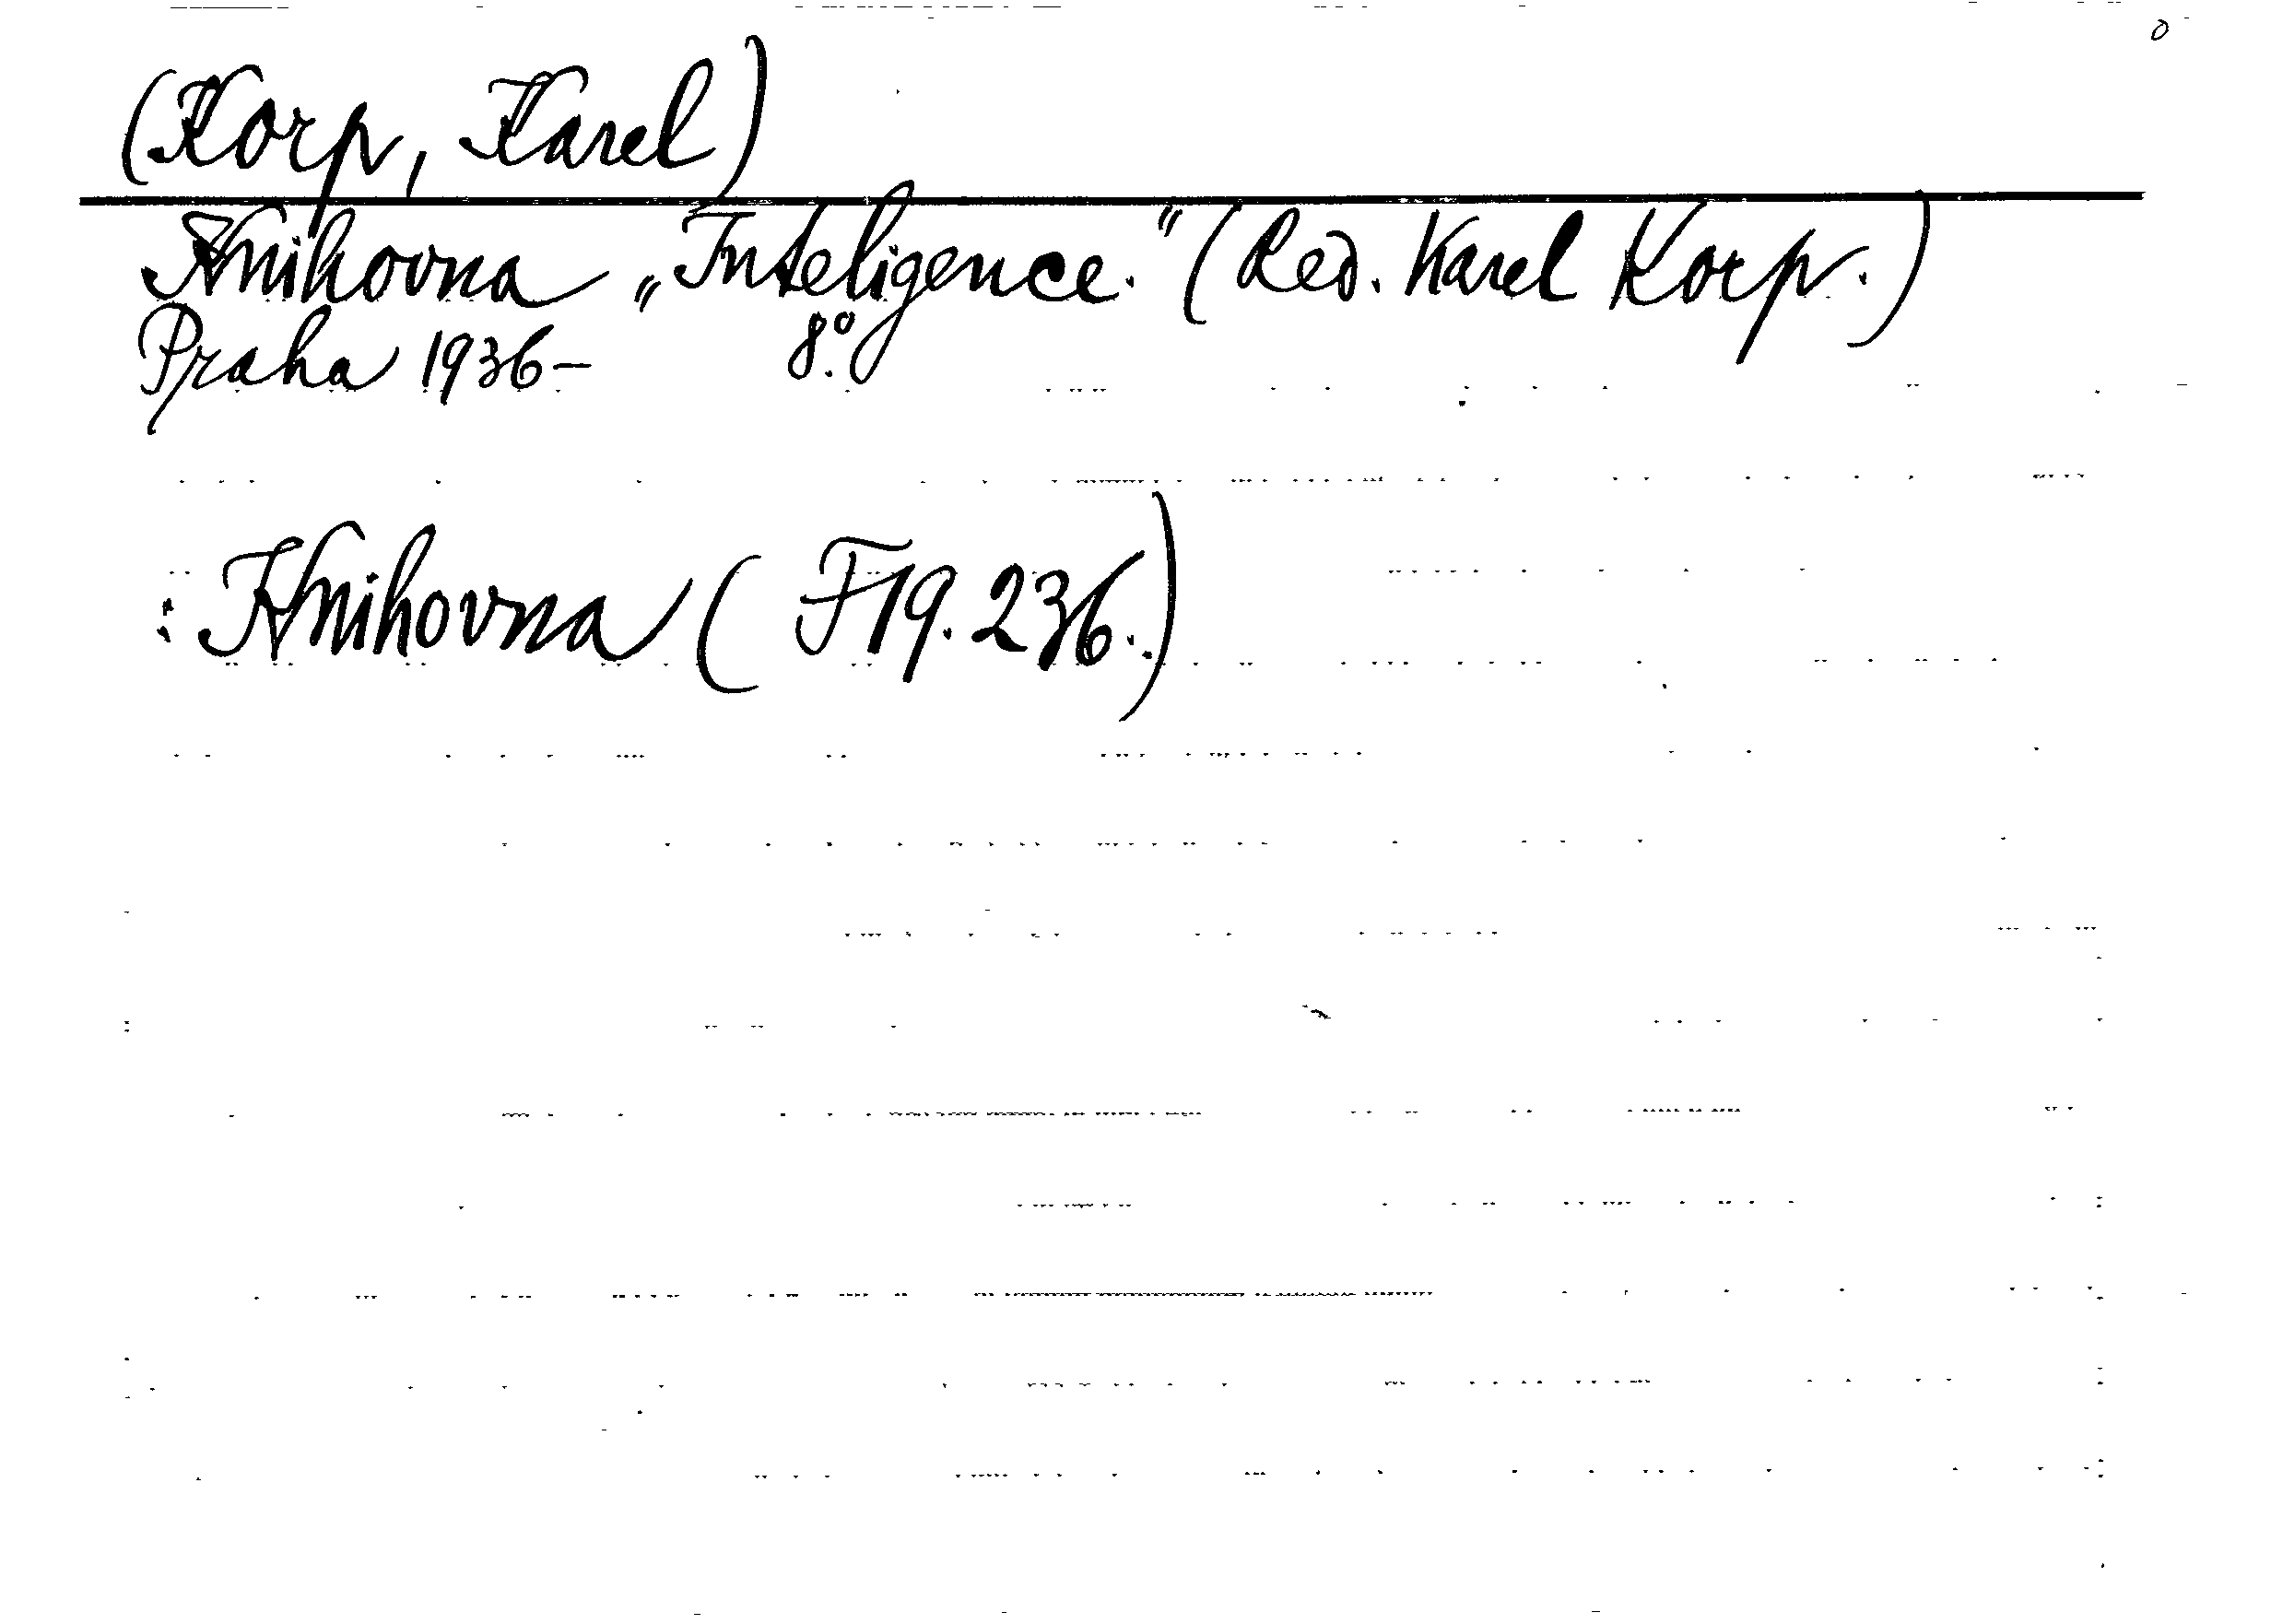 (Korp, Karel)
Knihovna „Inteligence.“ (Red. Karel Korp.)
Praha 1936- 8.°
Knihovna (F19.236.)